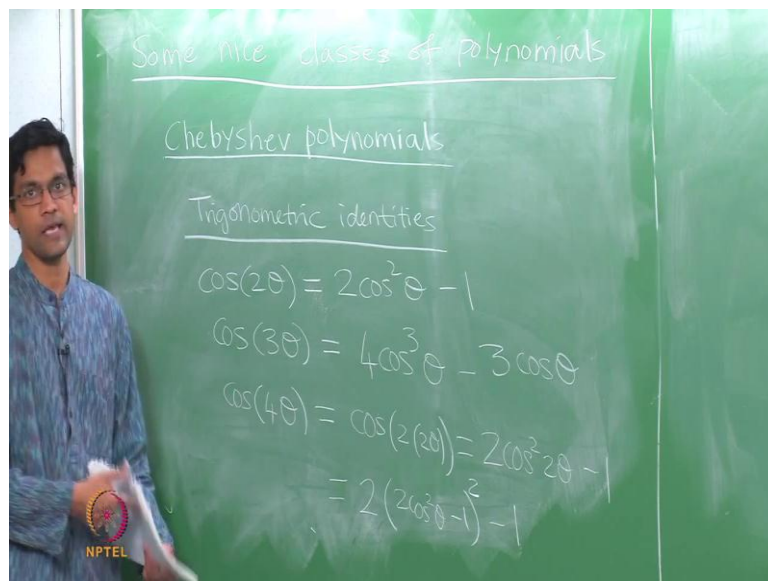 Some nice classes of polynomials
Chebyshev polynomials
Trigonometric identities
cos(2θ) = 2cos²θ - 1
cos(3θ) = 4cos³θ - 3cosθ
cos(4θ) = cos(2(2θ)) = 2cos²2θ - 1
= 2(2cos²θ-1)² - 1
NPTEL